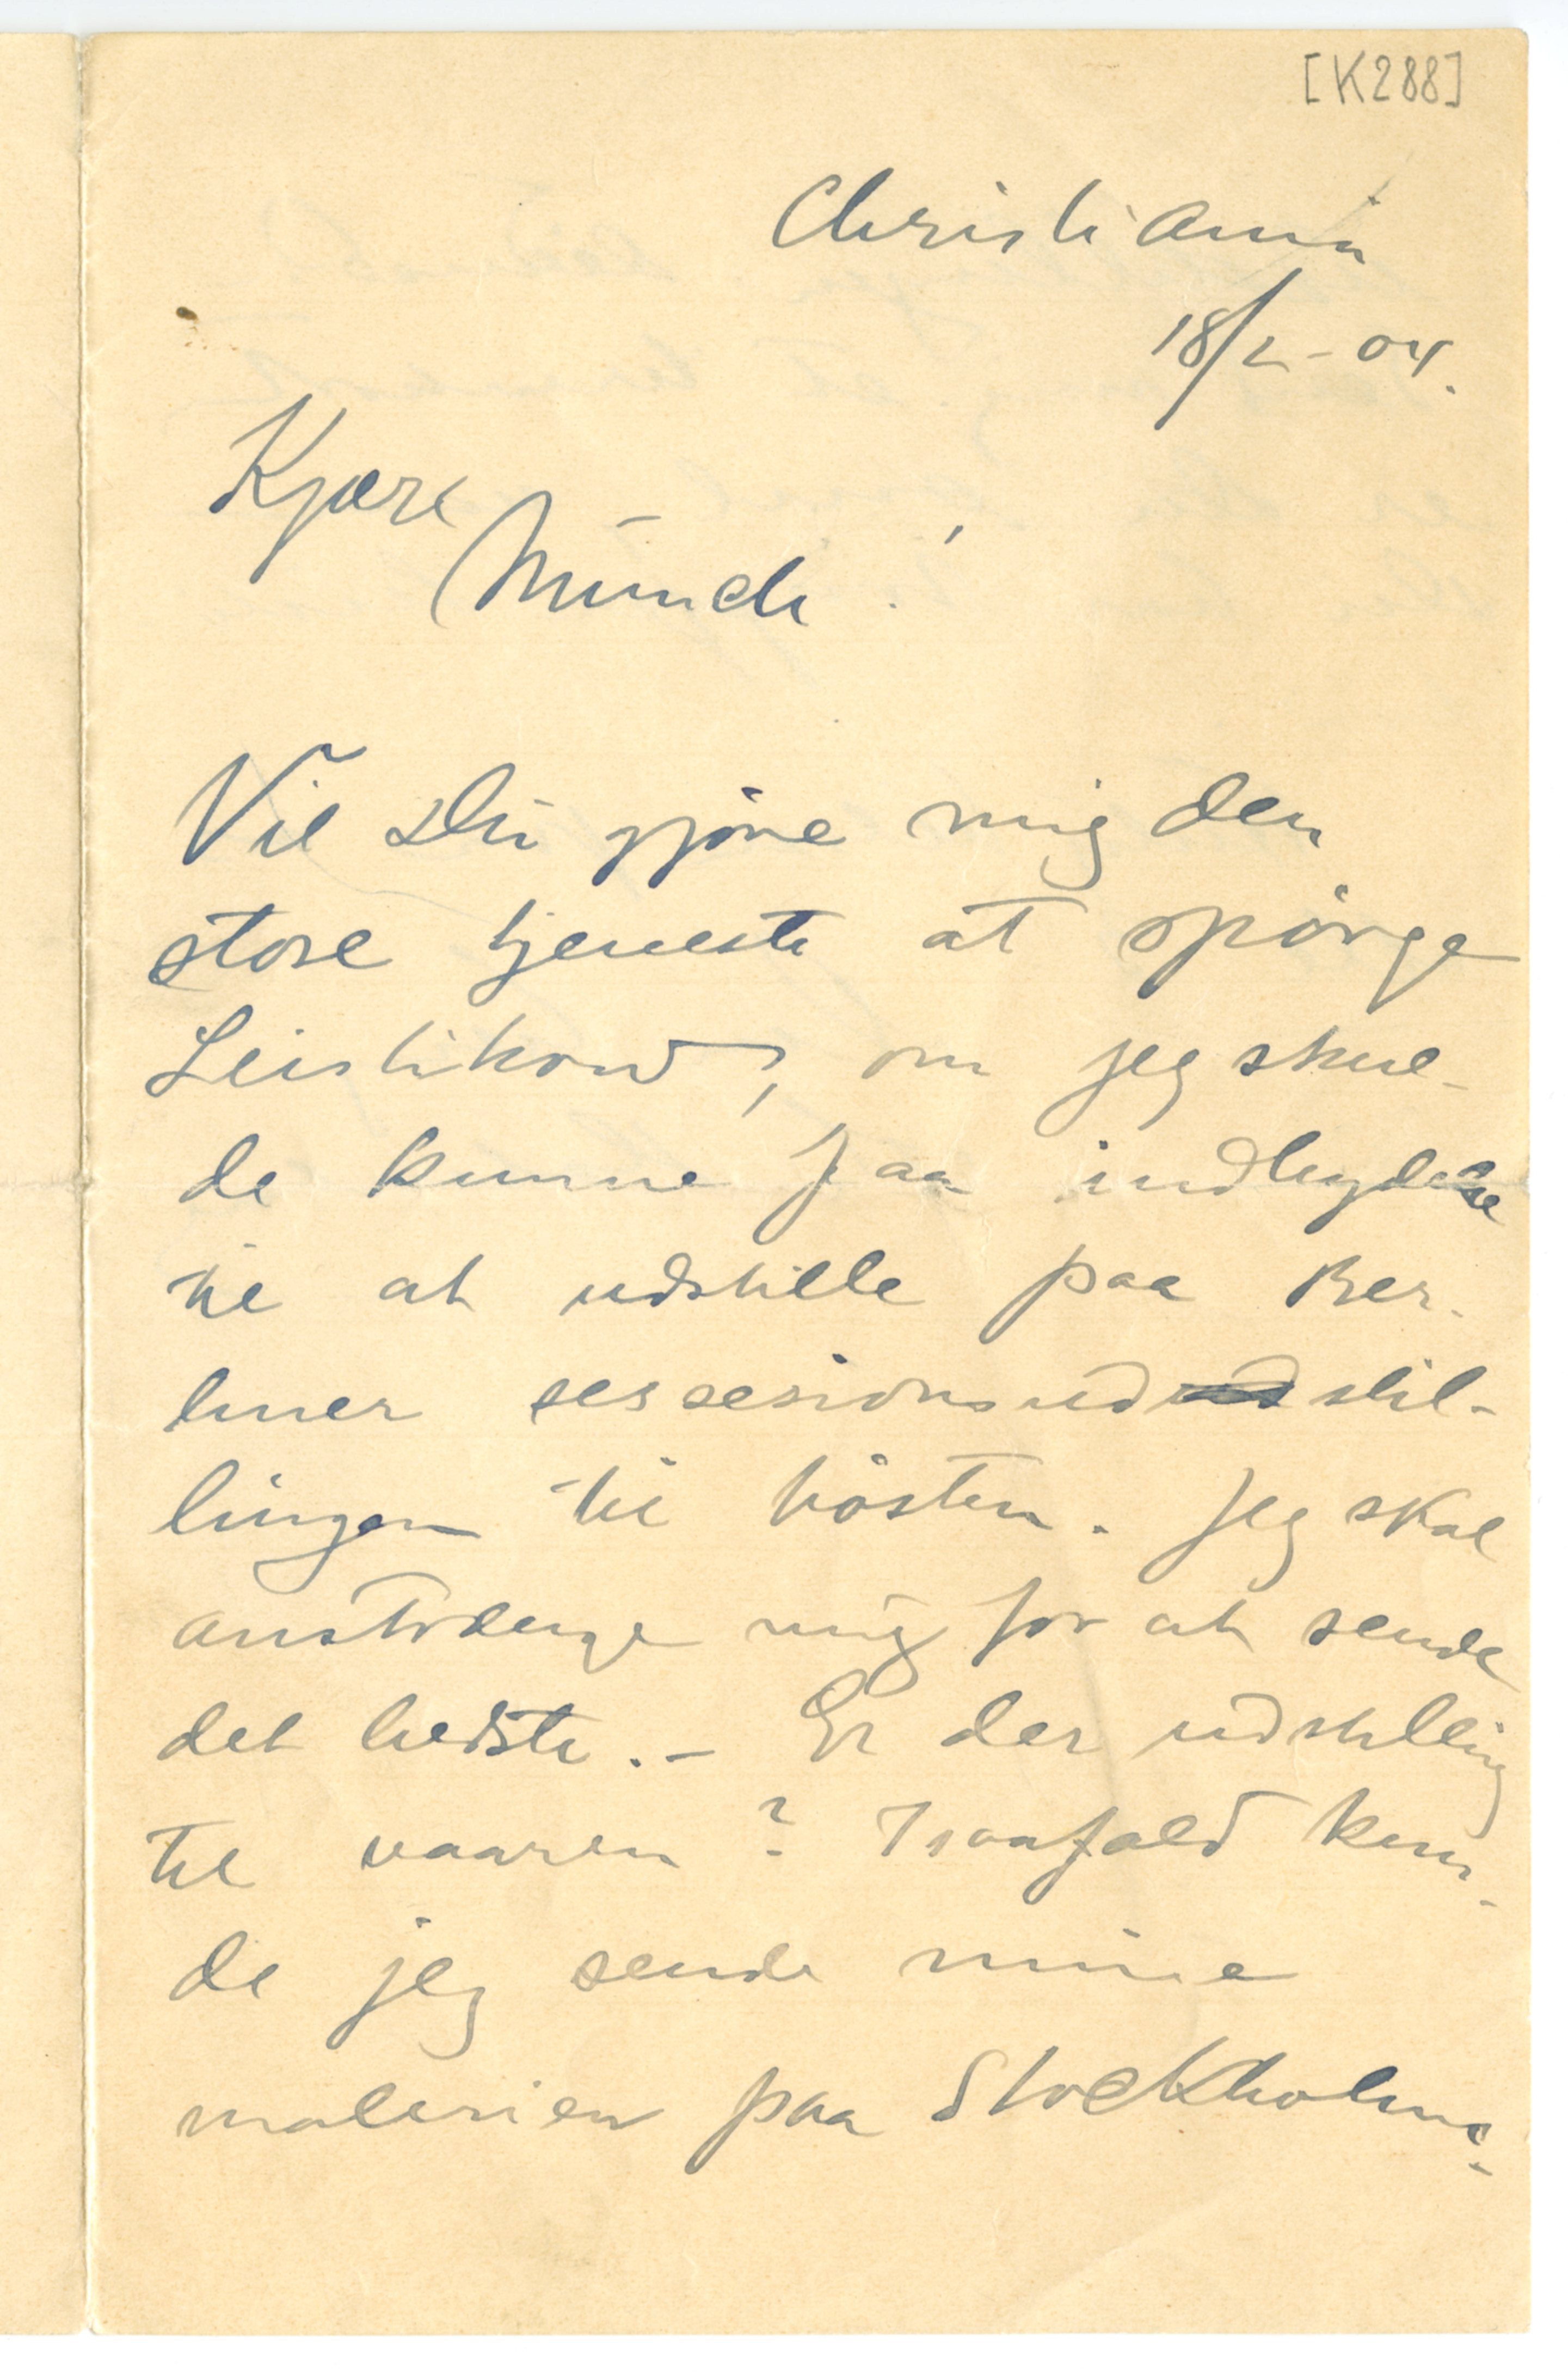 [K288]
Christiania
18/2-04.
Kjære
Munch!
Vil Du gjøre mig den
store tjeneste at spørge
Leistikow, om jeg skul-
de kunne faa indbydelse
til at udstille paa Ber-
liner sessesionsudstil-
lingen til høsten. Jeg skal
anstrænge mig for at sende
det bedste.- Er der udstilling
til vaaren? Isaafald kun-
de jeg sende mine
malerier paa Stockholms-